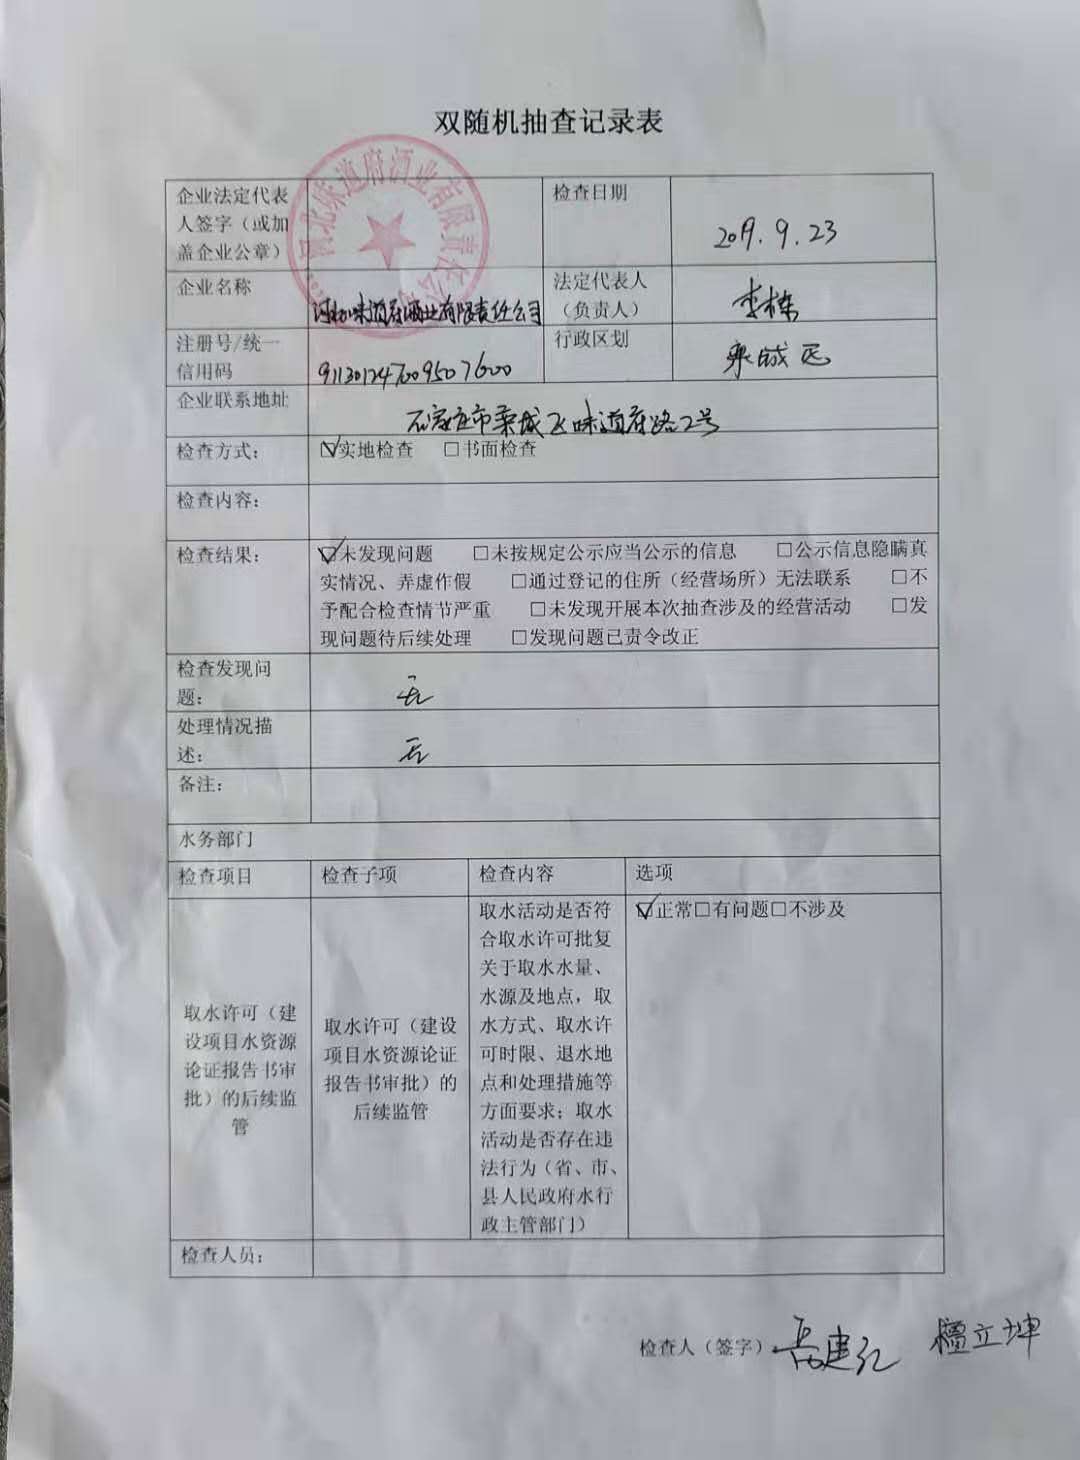 双随机抽查记录表
企业法定代表
人签字（或加
盖企业公章）
河北味道府酒业有限责任公司
检查日期
2019.9.23
企业名称
河北味道府酒业有限责任公司
法定代表人
（负责人）
李栋
注册号/统一
信用码
行政区划
栾城区
企业联系地址
石家庄市栾城区味道府路2号
检查方式：
☑实地检查 □书面检查
检查内容：
检查结果：
☑未发现问题 □未按规定公示应当公示的信息 □公示信息隐瞒真
实情况、弄虚作假 □通过登记的住所（经营场所）无法联系 □不
予配合检查情节严重 □未发现开展本次抽查涉及的经营活动 □发
现问题待后续处理 □发现问题已责令改正
检查发现问
题：
无
处理情况描
述：
无
备注：
水务部门
检查项目
检查子项
检查内容
选项
取水许可（建
设项目水资源
论证报告书审
批）的后续监
管
取水许可（建设
项目水资源论证
报告书审批）的
后续监管
取水活动是否符
合取水许可批复
关于取水水量、
水源及地点，取
水方式、取水许
可时限、退水地
点和处理措施等
方面要求；取水
活动是否存在违
法行为（省、市、
县人民政府水行
政主管部门）
☑正常□有问题□不涉及
检查人员：
检查人（签字） 檀立坤